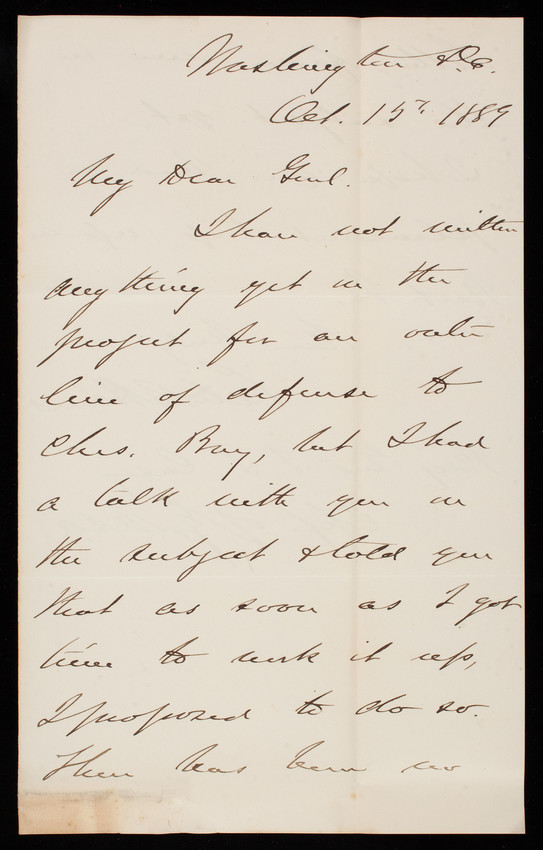 Washington D.C.
Oct. 15th 1889
My Dear Genl.
I have not written
anything yet on the
project for an outer
line of defense to
Ches. Bay, but I had
a talk with you on
the subject & told you
that as soon as I got
time to work it up,
I proposed to do so.
There has been no